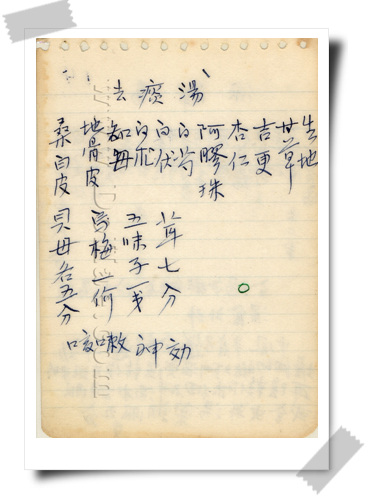 去痰湯
生地
甘草
吉更
杏仁
阿膠珠
白芍
白伏
白朮
知母
地骨皮
桑白皮
七分
五味子一
烏梅一
貝母各五分
咳嗽神効